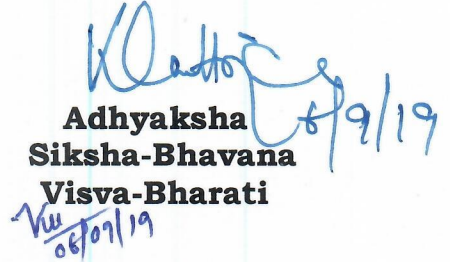 6/9/19
Adhyaksha
Siksha-Bhavana
Visva-Bharati
06/09/19